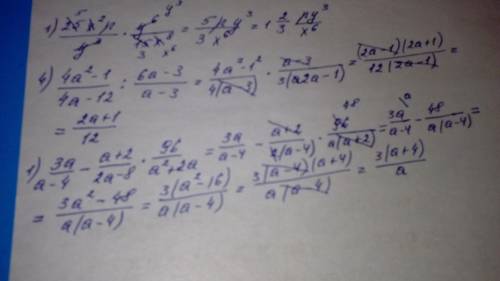 1) 25x²p / y³ · y⁶ / 15x⁸ = 5py³ / 3x⁶ = 1 2/3 py³ / x⁶
4) (4a²-1) / (4a-12) : (6a-3) / (a-3) = (4a²-1²) / 4(a-3) · (a-3) / 3(2a-1) = (2a-1)(2a+1) / 12(2a-1) =
= (2a+1) / 12
1) 3a / (a-4) - (a+2) / (2a-8) · 96 / (a²+2a) = 3a / (a-4) - (a+2) / 2(a-4) · 96 / a(a+2) = 3a / (a-4) - 48 / a(a-4) =
= (3a²-48) / a(a-4) = 3(a²-16) / a(a-4) = 3(a-4)(a+4) / a(a-4) = 3(a+4) / a